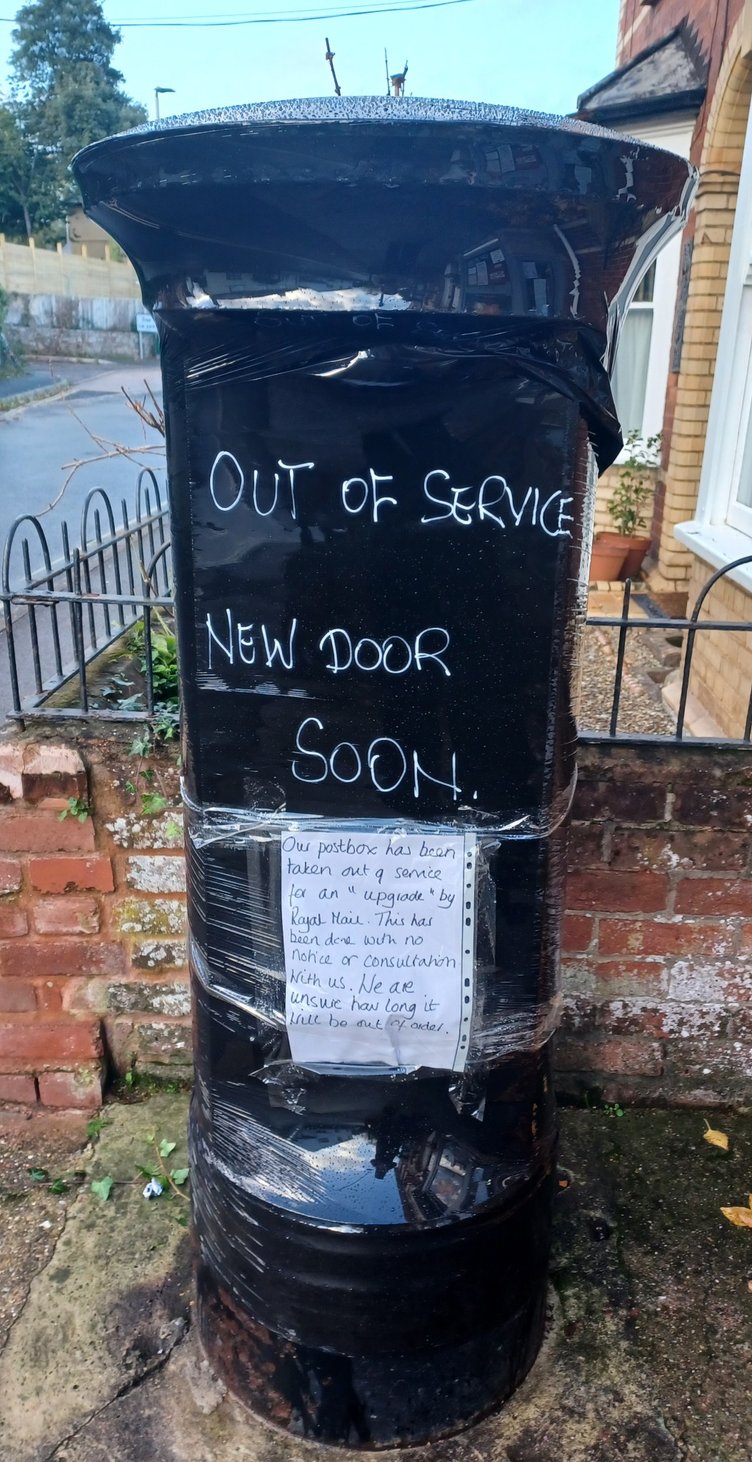 OUT OF SERVICE
NEW DOOR
SOON.
Our postbox has been
taken out of service
for an "upgrade" by
Royal Mail. This has
been done with no
notice or consultation
with us. We are
unsure how long it
will be out of order.